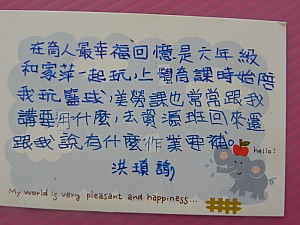 在商人最幸福回憶是六年級
和家萍一起玩,上體育課時始陪
我玩籃球,美勞課也常常跟我
講要用什麼,去資源班回來還
跟我說有什麼作業要補。
hello!
洪瑱
My world is very pleasant and happiness...